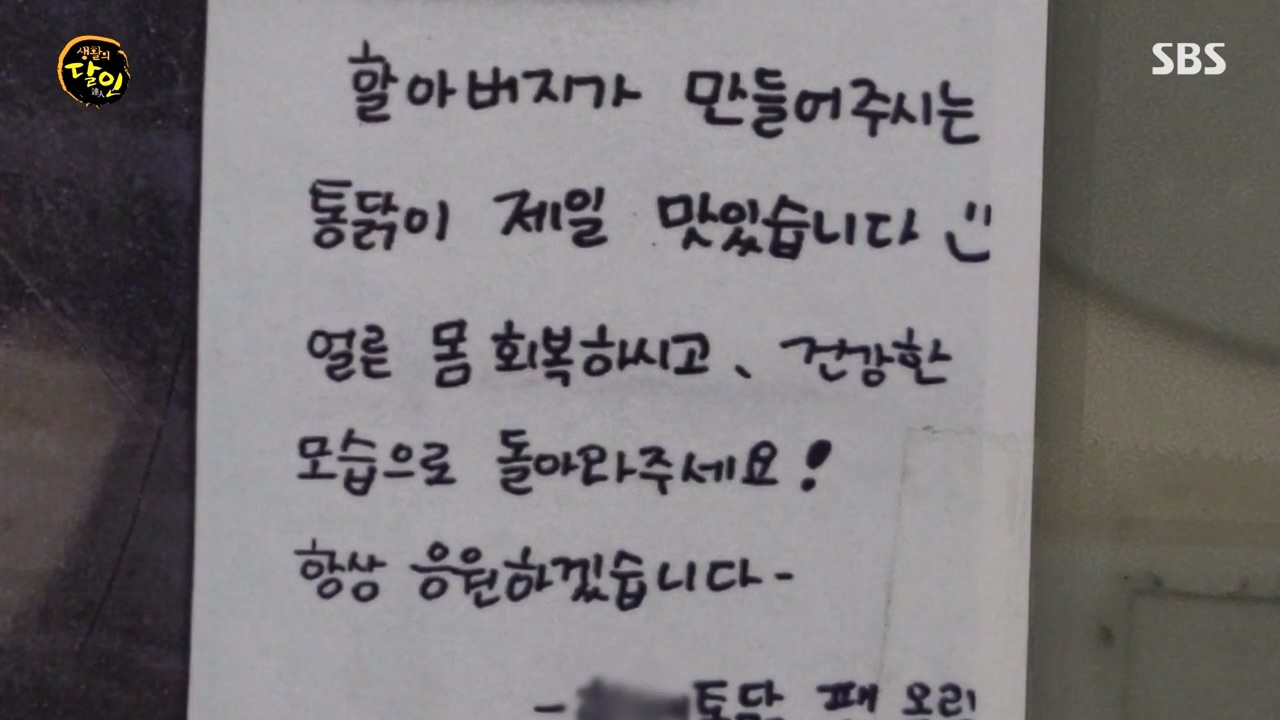 생활의
달인
達人
SBS
할아버지가 만들어주시는
통닭이 제일 맛있습니다
얼른 몸 회복하시고、 건강한
모습으로 돌아와주세요!
항상 응원하겠습니다-
- 통닭 팬 올림